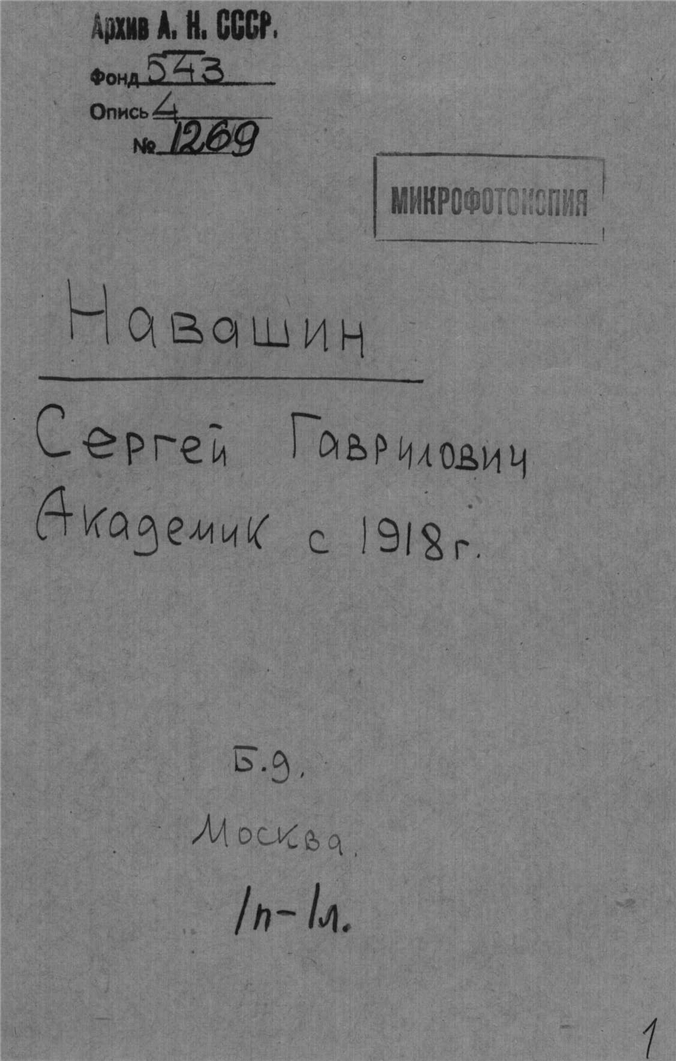 Архив А. Н. СССР.
Фонд 543
Опись 4
№ 1269
МИКРОФОТОКОПИЯ
Навашин
Сергей Гаврилович
Академик с 1918 г.
Б.д.
Москва.
1п-1л.
1